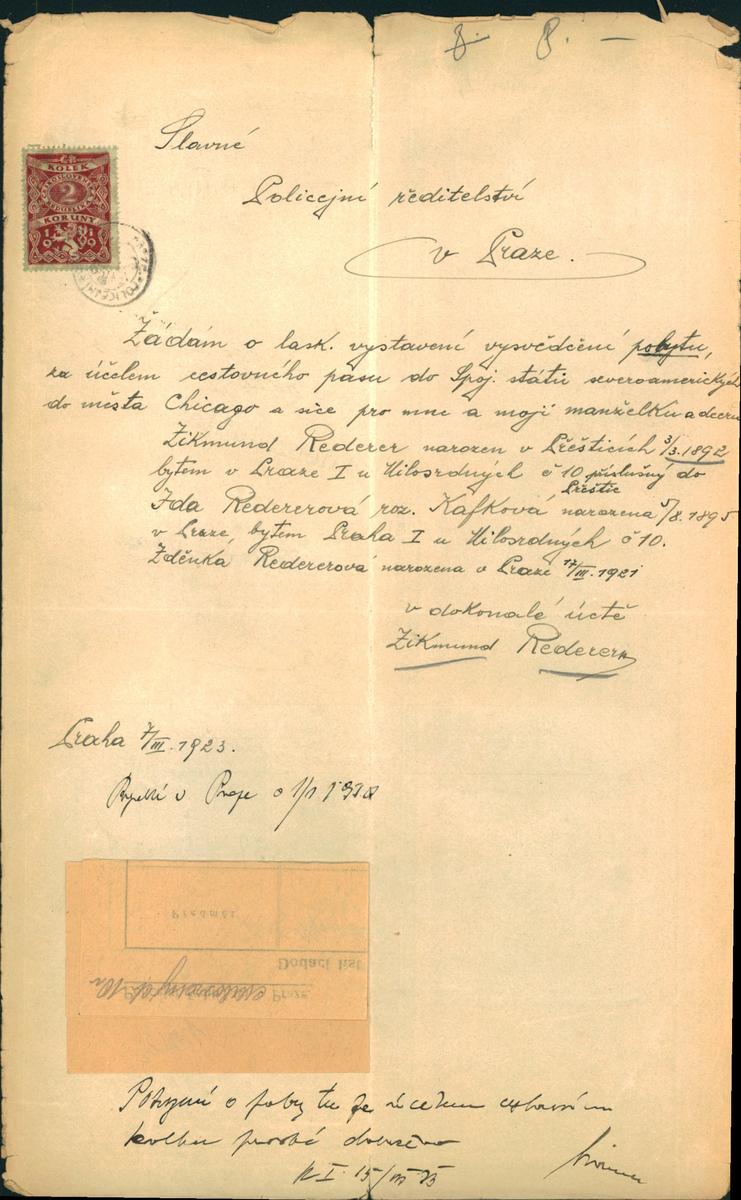 8. 8. —
KOLEK
2
KORUNY
Slavné
Policejní ředitelství
v Praze.
Žádám o lask. vystavení vysvědčení pobytu,
za účelem cestovného pasu do Spoj. států severoamerických
do města Chicago a sice pro mne a moji manželku a dceru
Zikmund Rederer narozen v Přešticích 3/3. 1892
bytem v Praze I u Milosrdných č 10 příslušný do
Přeštic
Ida Redererová roz. Kafková narozena 5/8. 1895
v Praze, bytem Praha I u Milosrdných č 10.
Zdeňka Redererová narozena v Praze 17/III. 1921
v dokonalé úctě
Zikmund Rederer
Praha 7/III. 1923.
v Praze o
Předmět
Dodací list
Praze
Potvrzení o pobytu za účelem
kolku prosbě
15/III 23